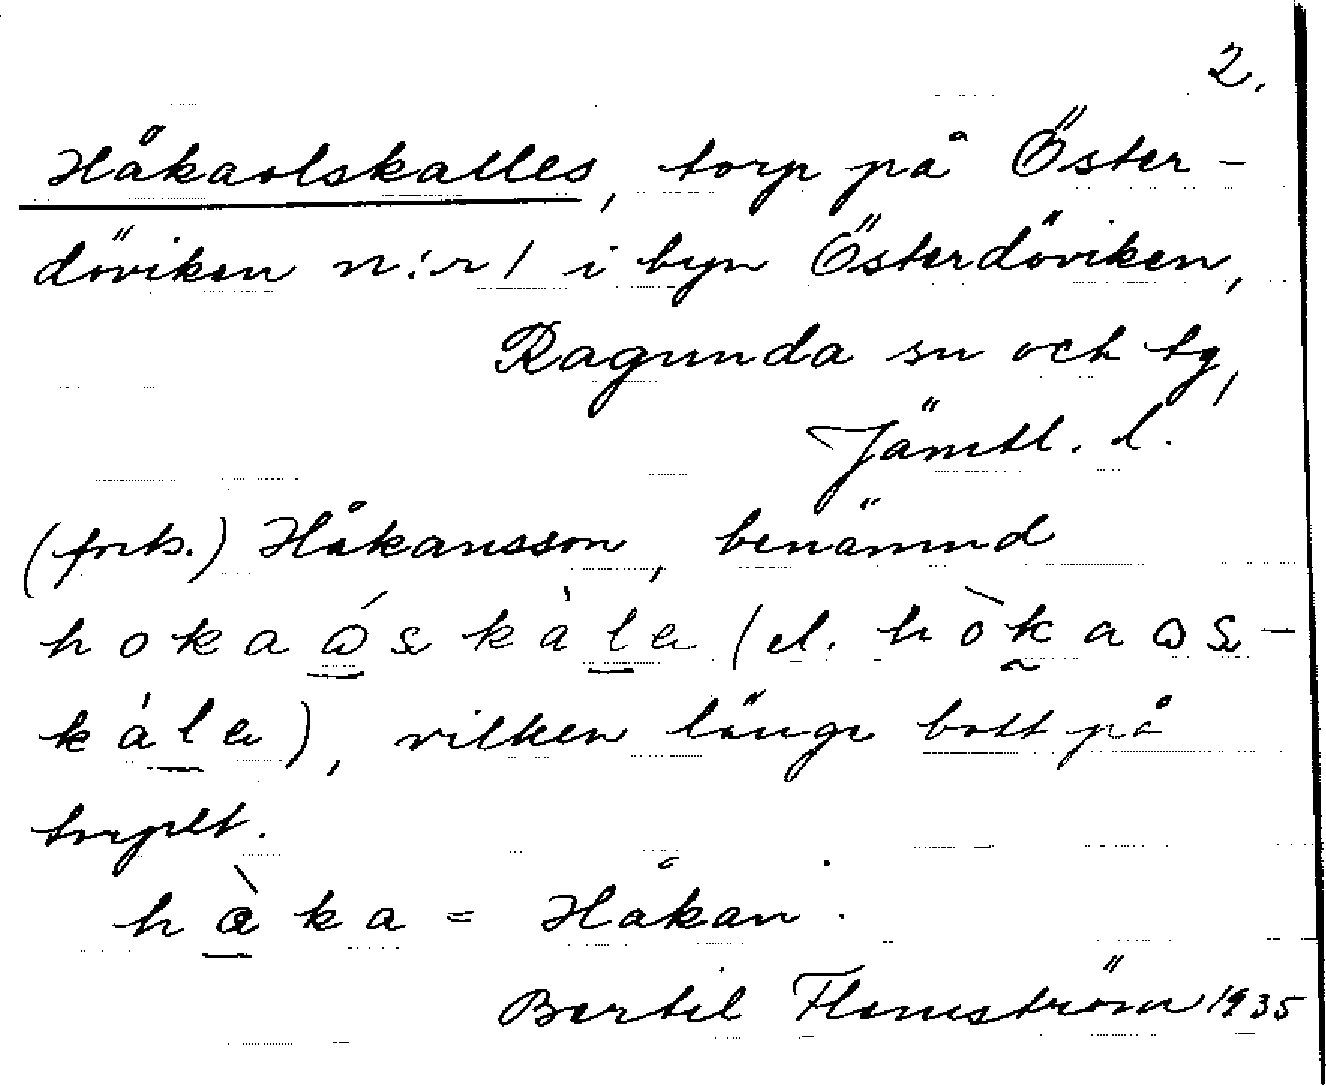 2.
Håkaolskalles, torp på Öster-
döviken n:r 1 i byn Österdöviken,
Ragunda sn och tg,
Jämtl. l.
(forts.) Håkansson, benämnd
(el.
), vilken länge bott på
torpet.
= Håkan.
Bertil Flemström 1935